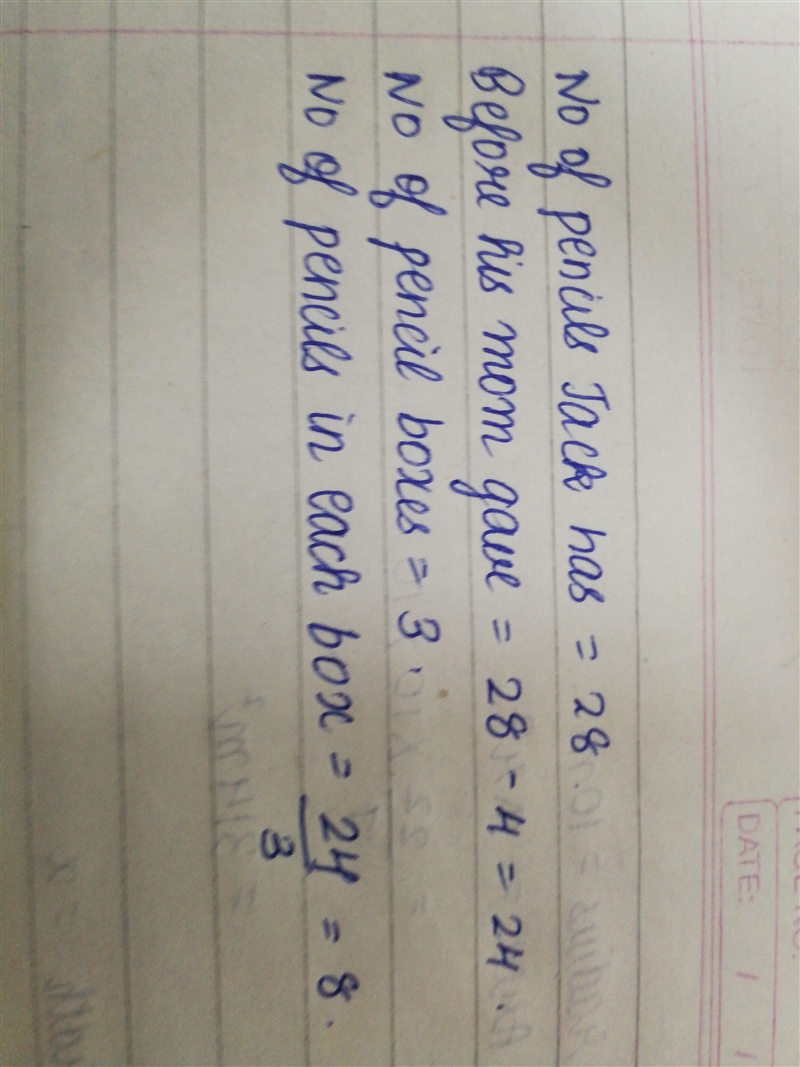 DATE: / /
No of pencils Jack has = 28.
Before his mom gave = 28 - 4 = 24.
No of pencil boxes = 3.
No of pencils in each box = 24/3 = 8.